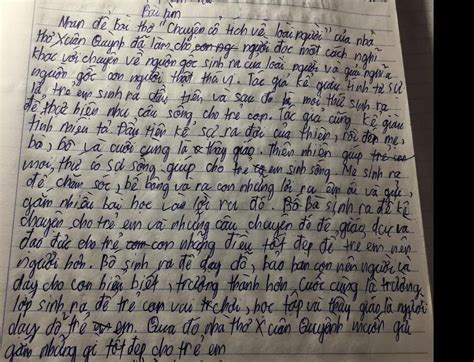 Bài làm
Nhan đề bài thơ "Chuyện cổ tích về loài người" của nhà
thơ Xuân Quỳnh đã làm cho người đọc một cách nghĩ
khác với chuyện về nguồn gốc sinh ra của loài người và giải nghĩa
nguồn gốc con người thật thú vị. Tác giả kể giàu tính tự sự
là, trẻ em sinh ra đầu tiên và sau đó là, mọi thứ sinh ra
để thực hiện nhu cầu sống cho trẻ con. Tác giả cũng kể giàu
tính miêu tả. Đầu tiên kể sự ra đời của thiên, rồi đến mẹ,
bà, bố và cuối cùng là thầy giáo. Thiên nhiên giúp
mọi thứ có sự sống giúp cho trẻ em sinh sống. Mẹ sinh ra
để chăm sóc, bế bồng và ra con những lời ru ấm áp và gửi
gắm nhiều bài học vào lời ru đó. Bà sinh ra để kể
chuyện cho trẻ em và những câu chuyện đó để giáo dục và
đạo đức cho trẻ con những điều tốt đẹp để trẻ em nên
người hơn. Bố sinh ra để dạy dỗ, bảo ban con nên người và
dạy cho con hiểu biết, trưởng thành hơn. Cuối cùng là trường
lớp sinh ra để trẻ con vui chơi, học tập và thầy giáo là người
dạy dỗ trẻ em. Qua đó nhà thơ Xuân Quỳnh muốn gửi
gắm những gì tốt đẹp cho trẻ em